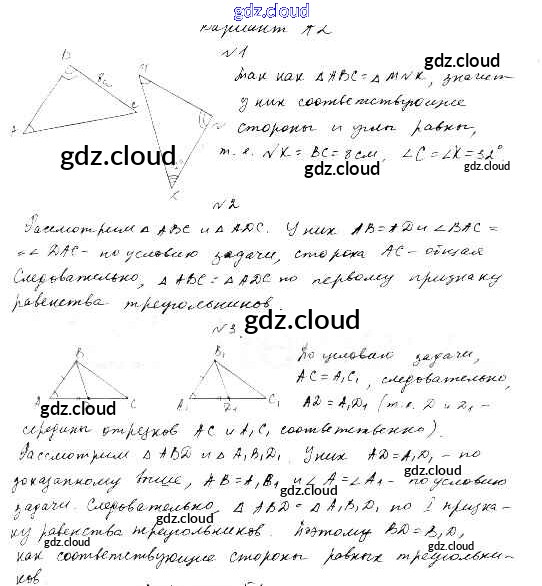 gdz.cloud
Вариант А2
№1
Так как △ABC = △MNK, значит
у них соответствующие
стороны и углы равны,
т.е. NK = BC = 8 см, ∠C = ∠K = 32°
B
8см
A
C
M
N
K
gdz.cloud
gdz.cloud
gdz.cloud
№2
Рассмотрим △ABC и △ADC. У них AB = AD и ∠BAC =
= ∠DAC - по условию задачи, сторона AC - общая
Следовательно, △ABC = △ADC по первому признаку
равенства треугольников.
gdz.cloud
№3
B
A
C
B₁
A₁
D₁
C₁
По условию задачи,
AC = A₁C₁, следовательно,
AD = A₁D₁ (т.к. D и D₁ -
середины отрезков AC и A₁C₁ соответственно).
gdz.cloud
gdz.cloud
Рассмотрим △ABD и △A₁B₁D₁. У них AD = A₁D₁ - по
доказанному выше, AB = A₁B₁ и ∠A = ∠A₁ - по условию
задачи. Следовательно, △ABD = △A₁B₁D₁ по I призна-
ку равенства треугольников. Поэтому BD = B₁D₁
как соответствующие стороны равных треугольни-
ков
gdz.cloud
gdz.cloud
gdz.cloud
gdz.cloud